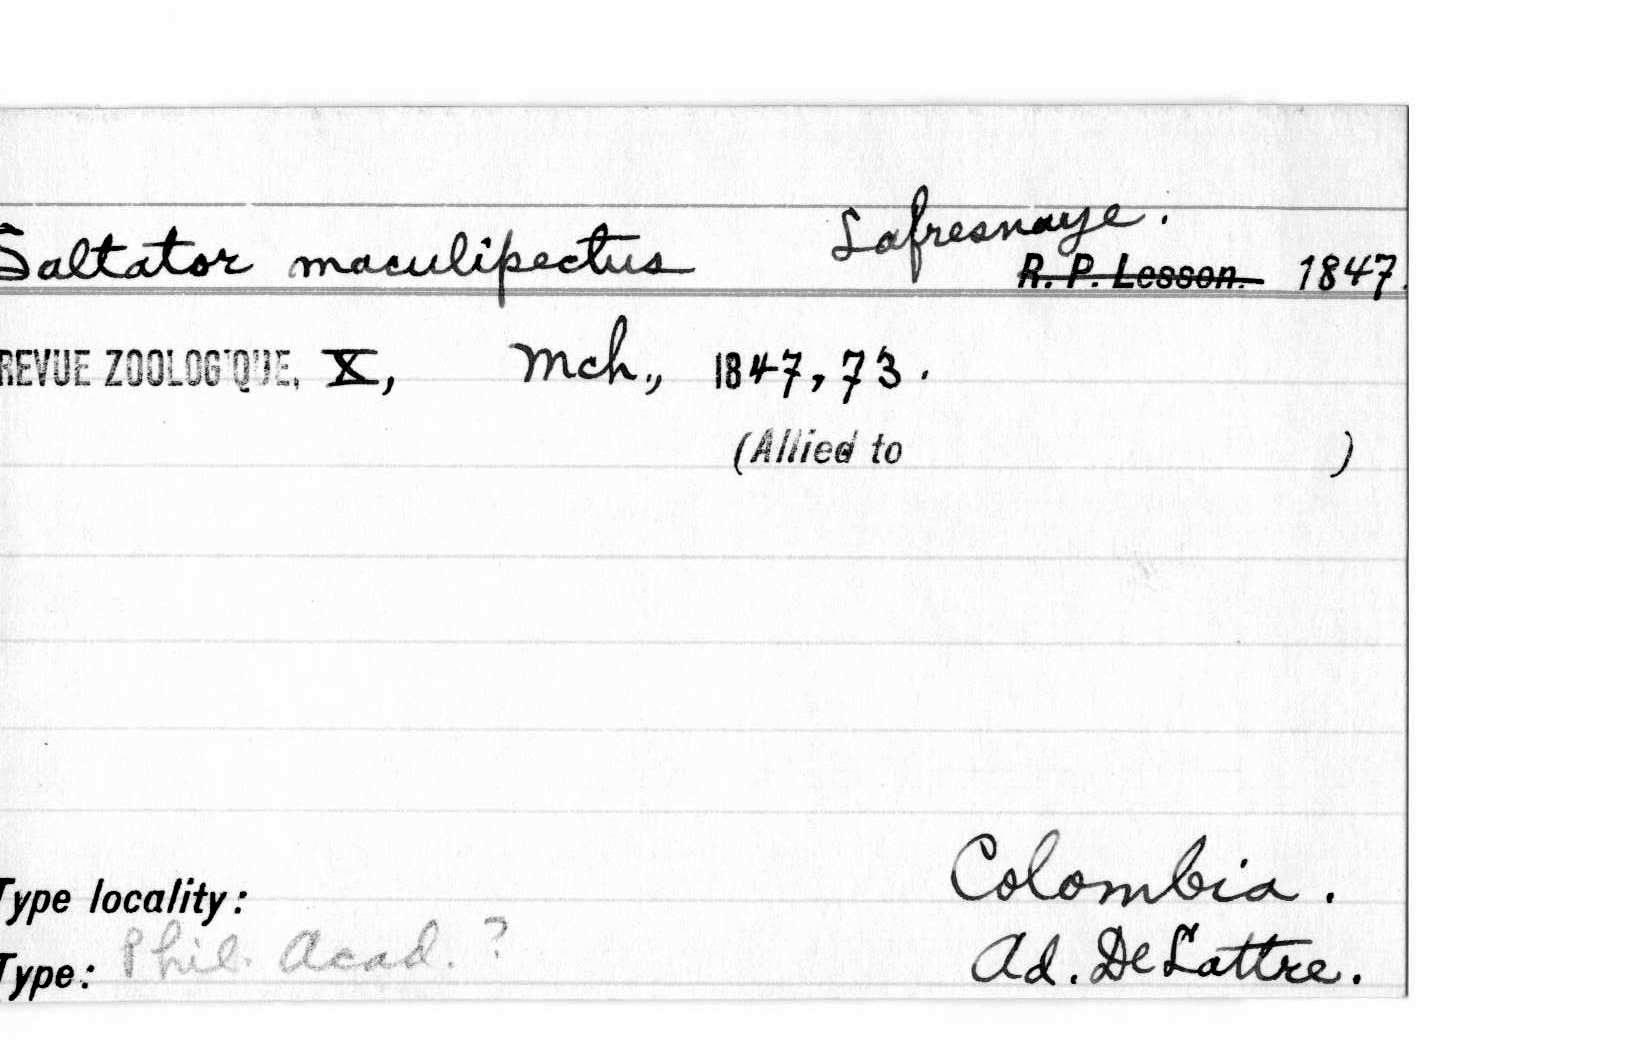 Saltator maculipectus Lafresnaye.
R. P. Lesson. 1847.
REVUE ZOOLOGIQUE, X, Mch., 1847, 73.
(Allied to )
Type locality: Colombia.
Type: Phil. Acad. ? Ad. DeLattre.